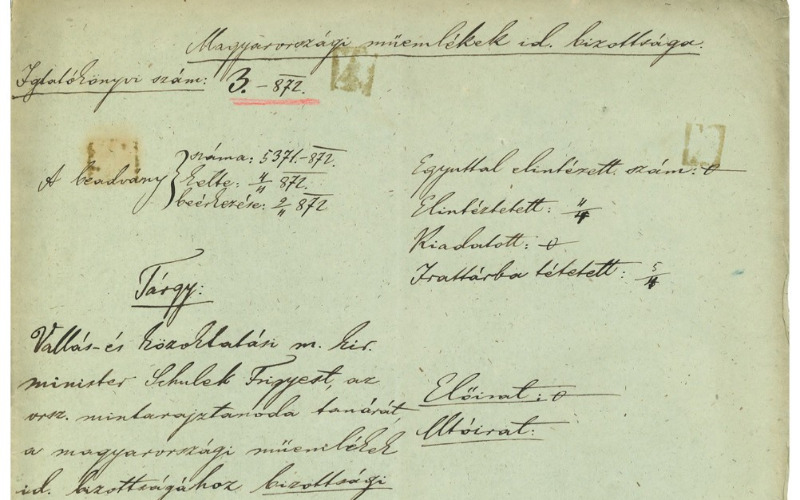 Magyarországi műemlékek id. bizottsága.
Igtatókönyvi szám: 3.-872.
A beadvány
száma: 5371.-872.
kelte: 4/11 872.
beérkezése: 2/11 872
Egyuttal elintézett szám: 0
Elintéztetett:
Kiadatott: 0
Irattárba tétetett:
Tárgy:
Vallás-és közoktatási m. kir.
minister Schulek Frigyest, az
orsz. mintarajztanoda tanárát
a magyarországi műemlékek
id. bizottságához bizottsági
Előirat: 0
Utóirat: